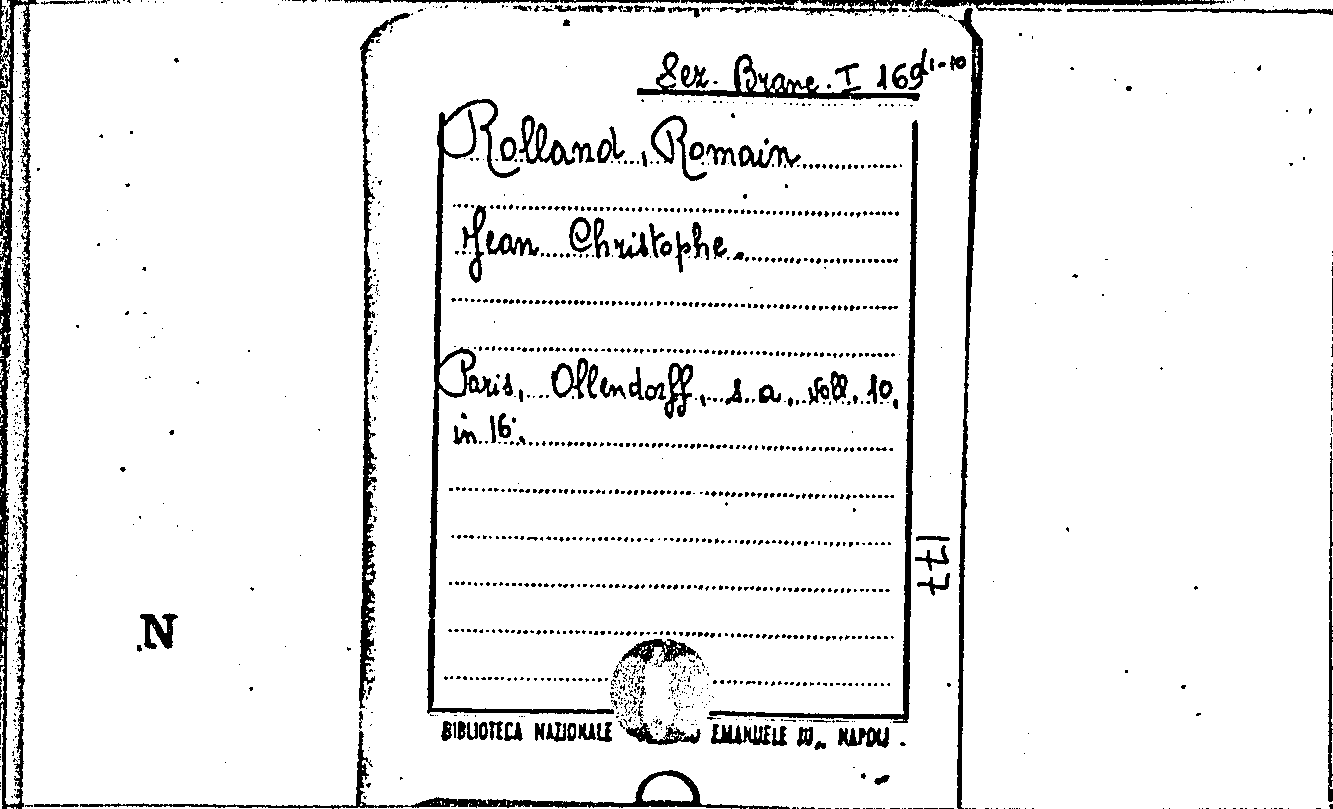 Sez. Branc. I 169(1-10
Rolland, Romain
Jean Christophe.
Paris, Ollendorff, s. a. voll. 10,
in 16°.
177
N
BIBLIOTECA NAZIONALE EMANUELE III„ NAPOLI